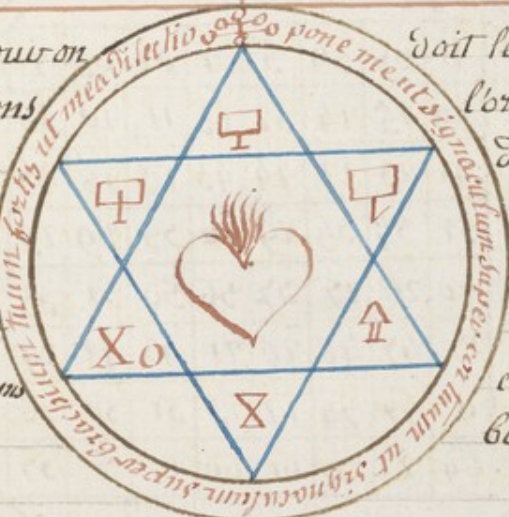 doit
pone me ut signaculum super cor tuum ut signaculum super brachium tuum fortis ut mea dilectio
Xo